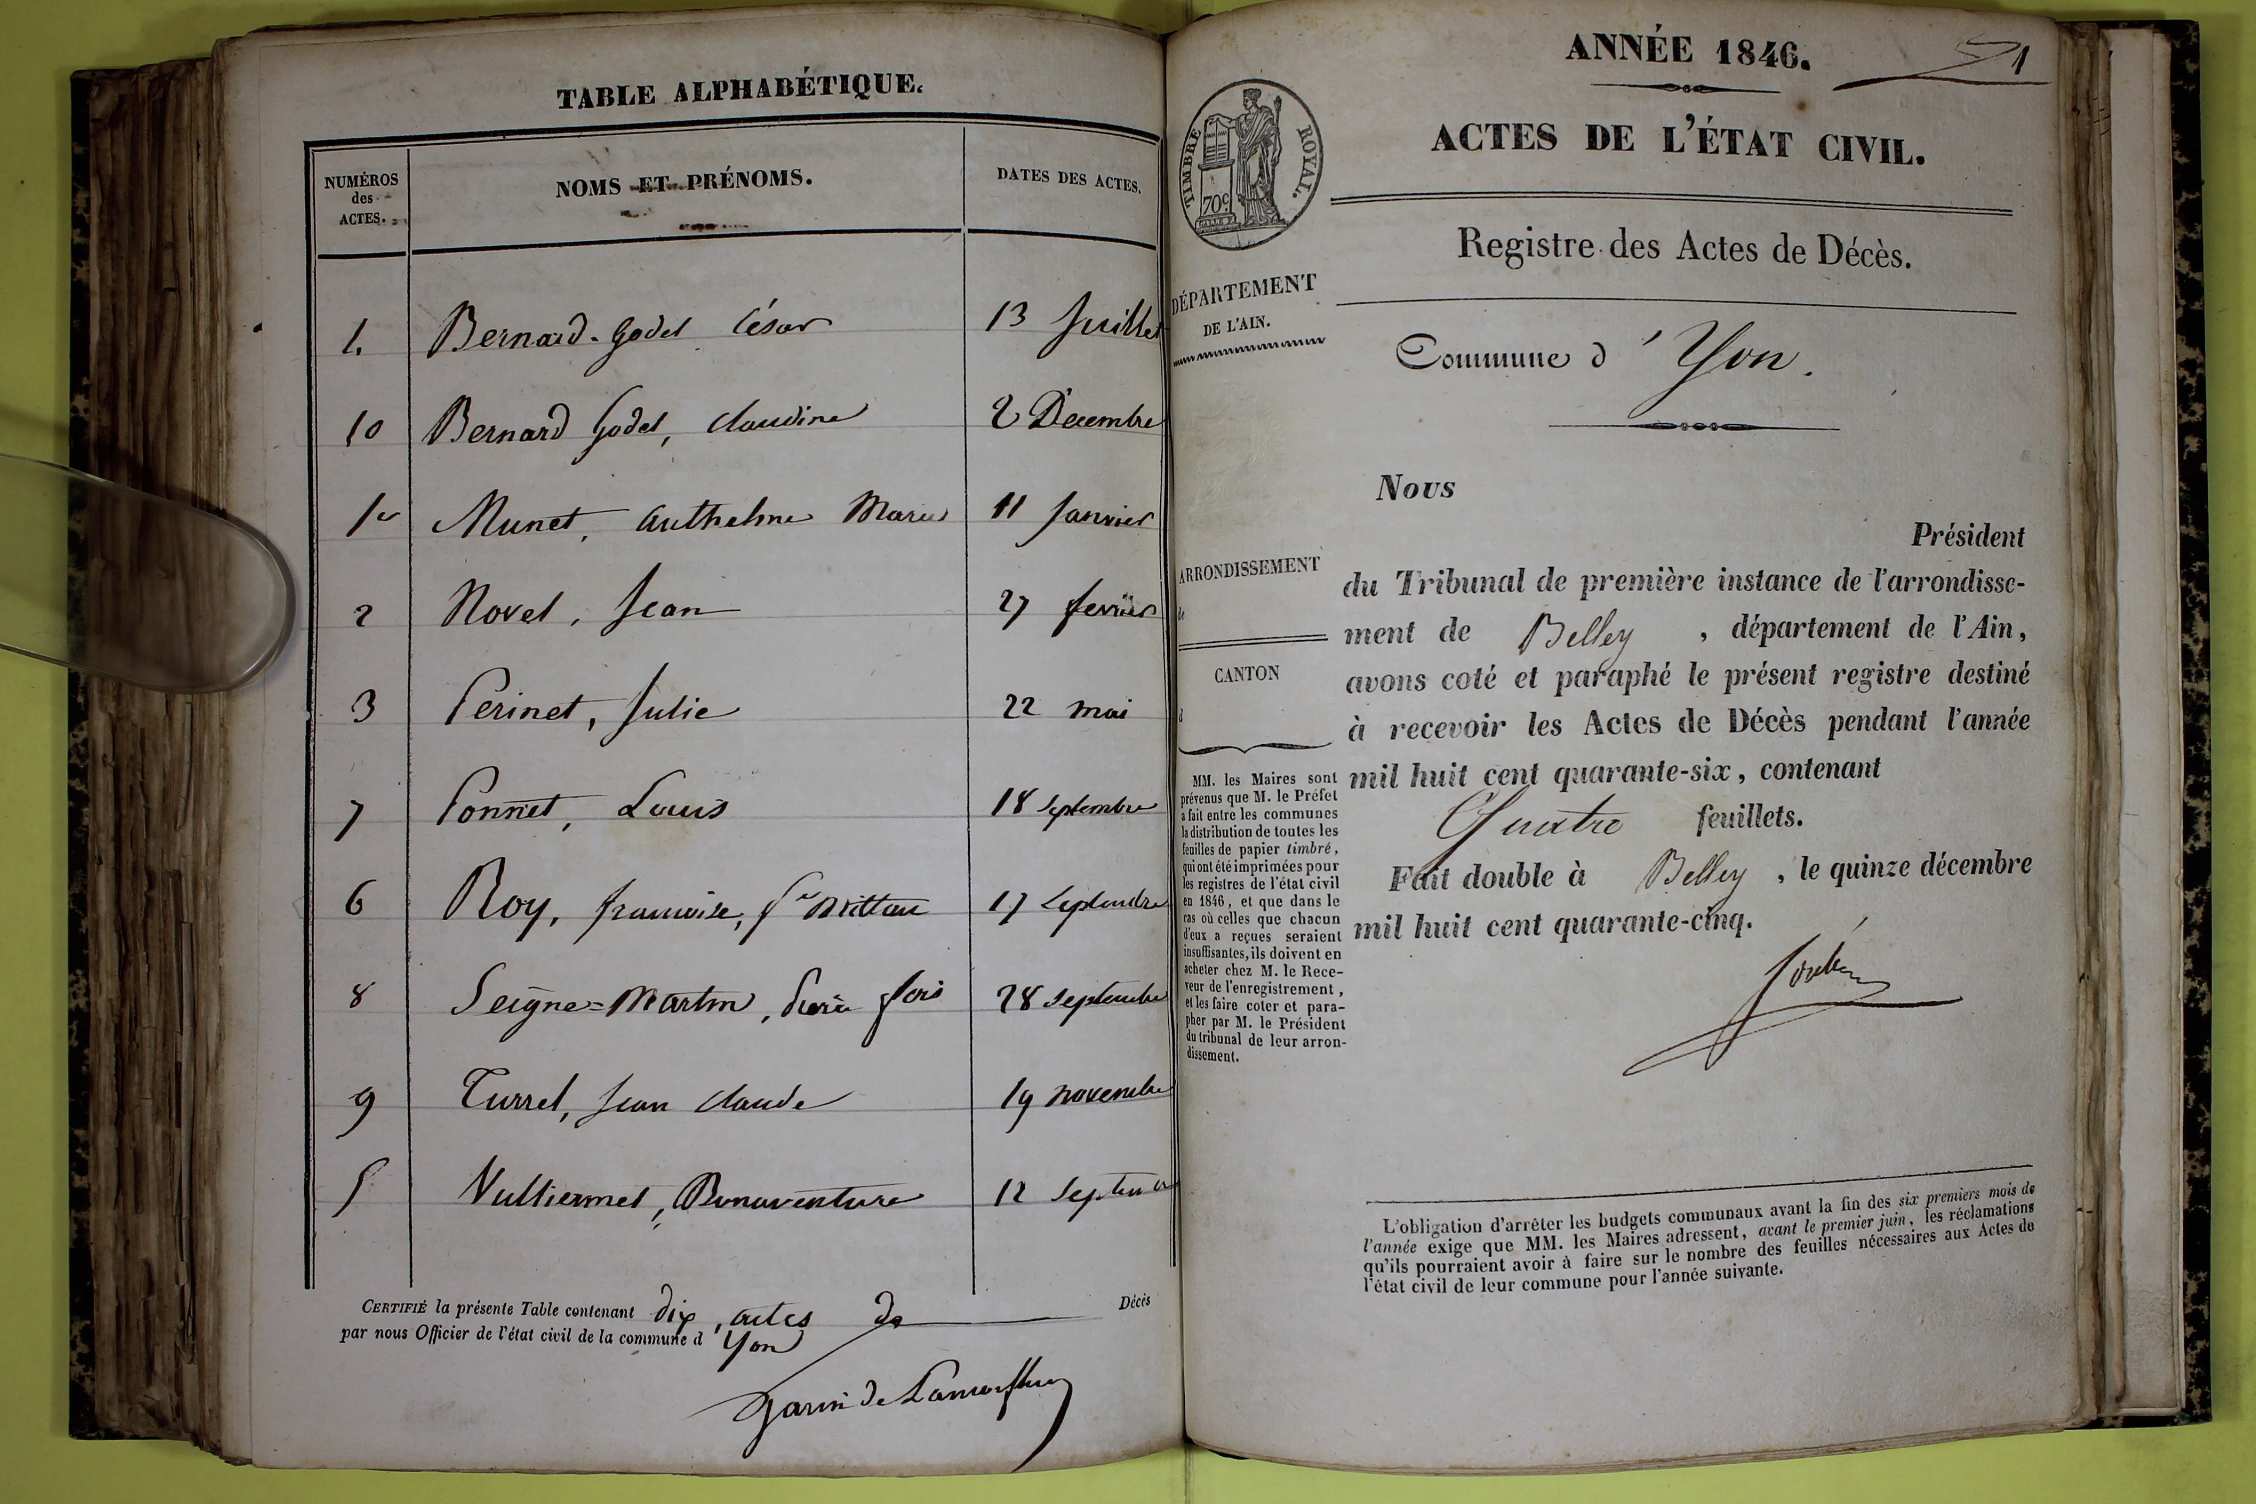 TABLE ALPHABÉTIQUE.
NUMÉROS
des
ACTES.
NOMS ET PRÉNOMS.
DATES DES ACTES.
4. Bernard-Godet César 13 Juillet
10 Bernard Godet, Claudine 2 Décembre
1er Munet, Anthelme Marie 11 Janvier
2 Novel, Jean 27 fevrier
3 Perinet, Julie 22 mai
7 Ponnet, Louis 18 Septembre
6 Roy, francoise, fe Mittan 17 Septembre
8 Seigne=Martin, fois 28 septembre
9 Turrel, Jean Claude 19 novembre
5 Vulliermet, Bonaventure 12 Septem
CERTIFIÉ la présente Table contenant dix, actes de Décès
par nous Officier de l'état civil de la commune d'Yon
Garin de
ANNÉE 1846.
1
ACTES DE L'ÉTAT CIVIL.
TIMBRE ROYAL.
70c
Registre des Actes de Décès.
DÉPARTEMENT
DE L'AIN.
Commune d'Yon.
ARRONDISSEMENT
de
CANTON
d
MM. les Maires sont
prévenus que M. le Préfet
a fait entre les communes
la distribution de toutes les
feuilles de papier timbré,
qui ont été imprimées pour
les registres de l'état civil
en 1846, et que dans le
cas où celles que chacun
d'eux a reçues seraient
insuffisantes, ils doivent en
acheter chez M. le Rece-
veur de l'enregistrement,
et les faire coter et para-
pher par M. le Président
du tribunal de leur arron-
dissement.
Nous
Président
du Tribunal de première instance de l'arrondisse-
ment de Belley, département de l'Ain,
avons coté et paraphé le présent registre destiné
à recevoir les Actes de Décès pendant l'année
mil huit cent quarante-six, contenant
Quatre feuillets.
Fait double à Belley, le quinze décembre
mil huit cent quarante-cinq.
L'obligation d'arrêter les budgets communaux avant la fin des six premiers mois de
l'année exige que MM. les Maires adressent, avant le premier juin, les réclamations
qu'ils pourraient avoir à faire sur le nombre des feuilles nécessaires aux Actes de
l'état civil de leur commune pour l'année suivante.